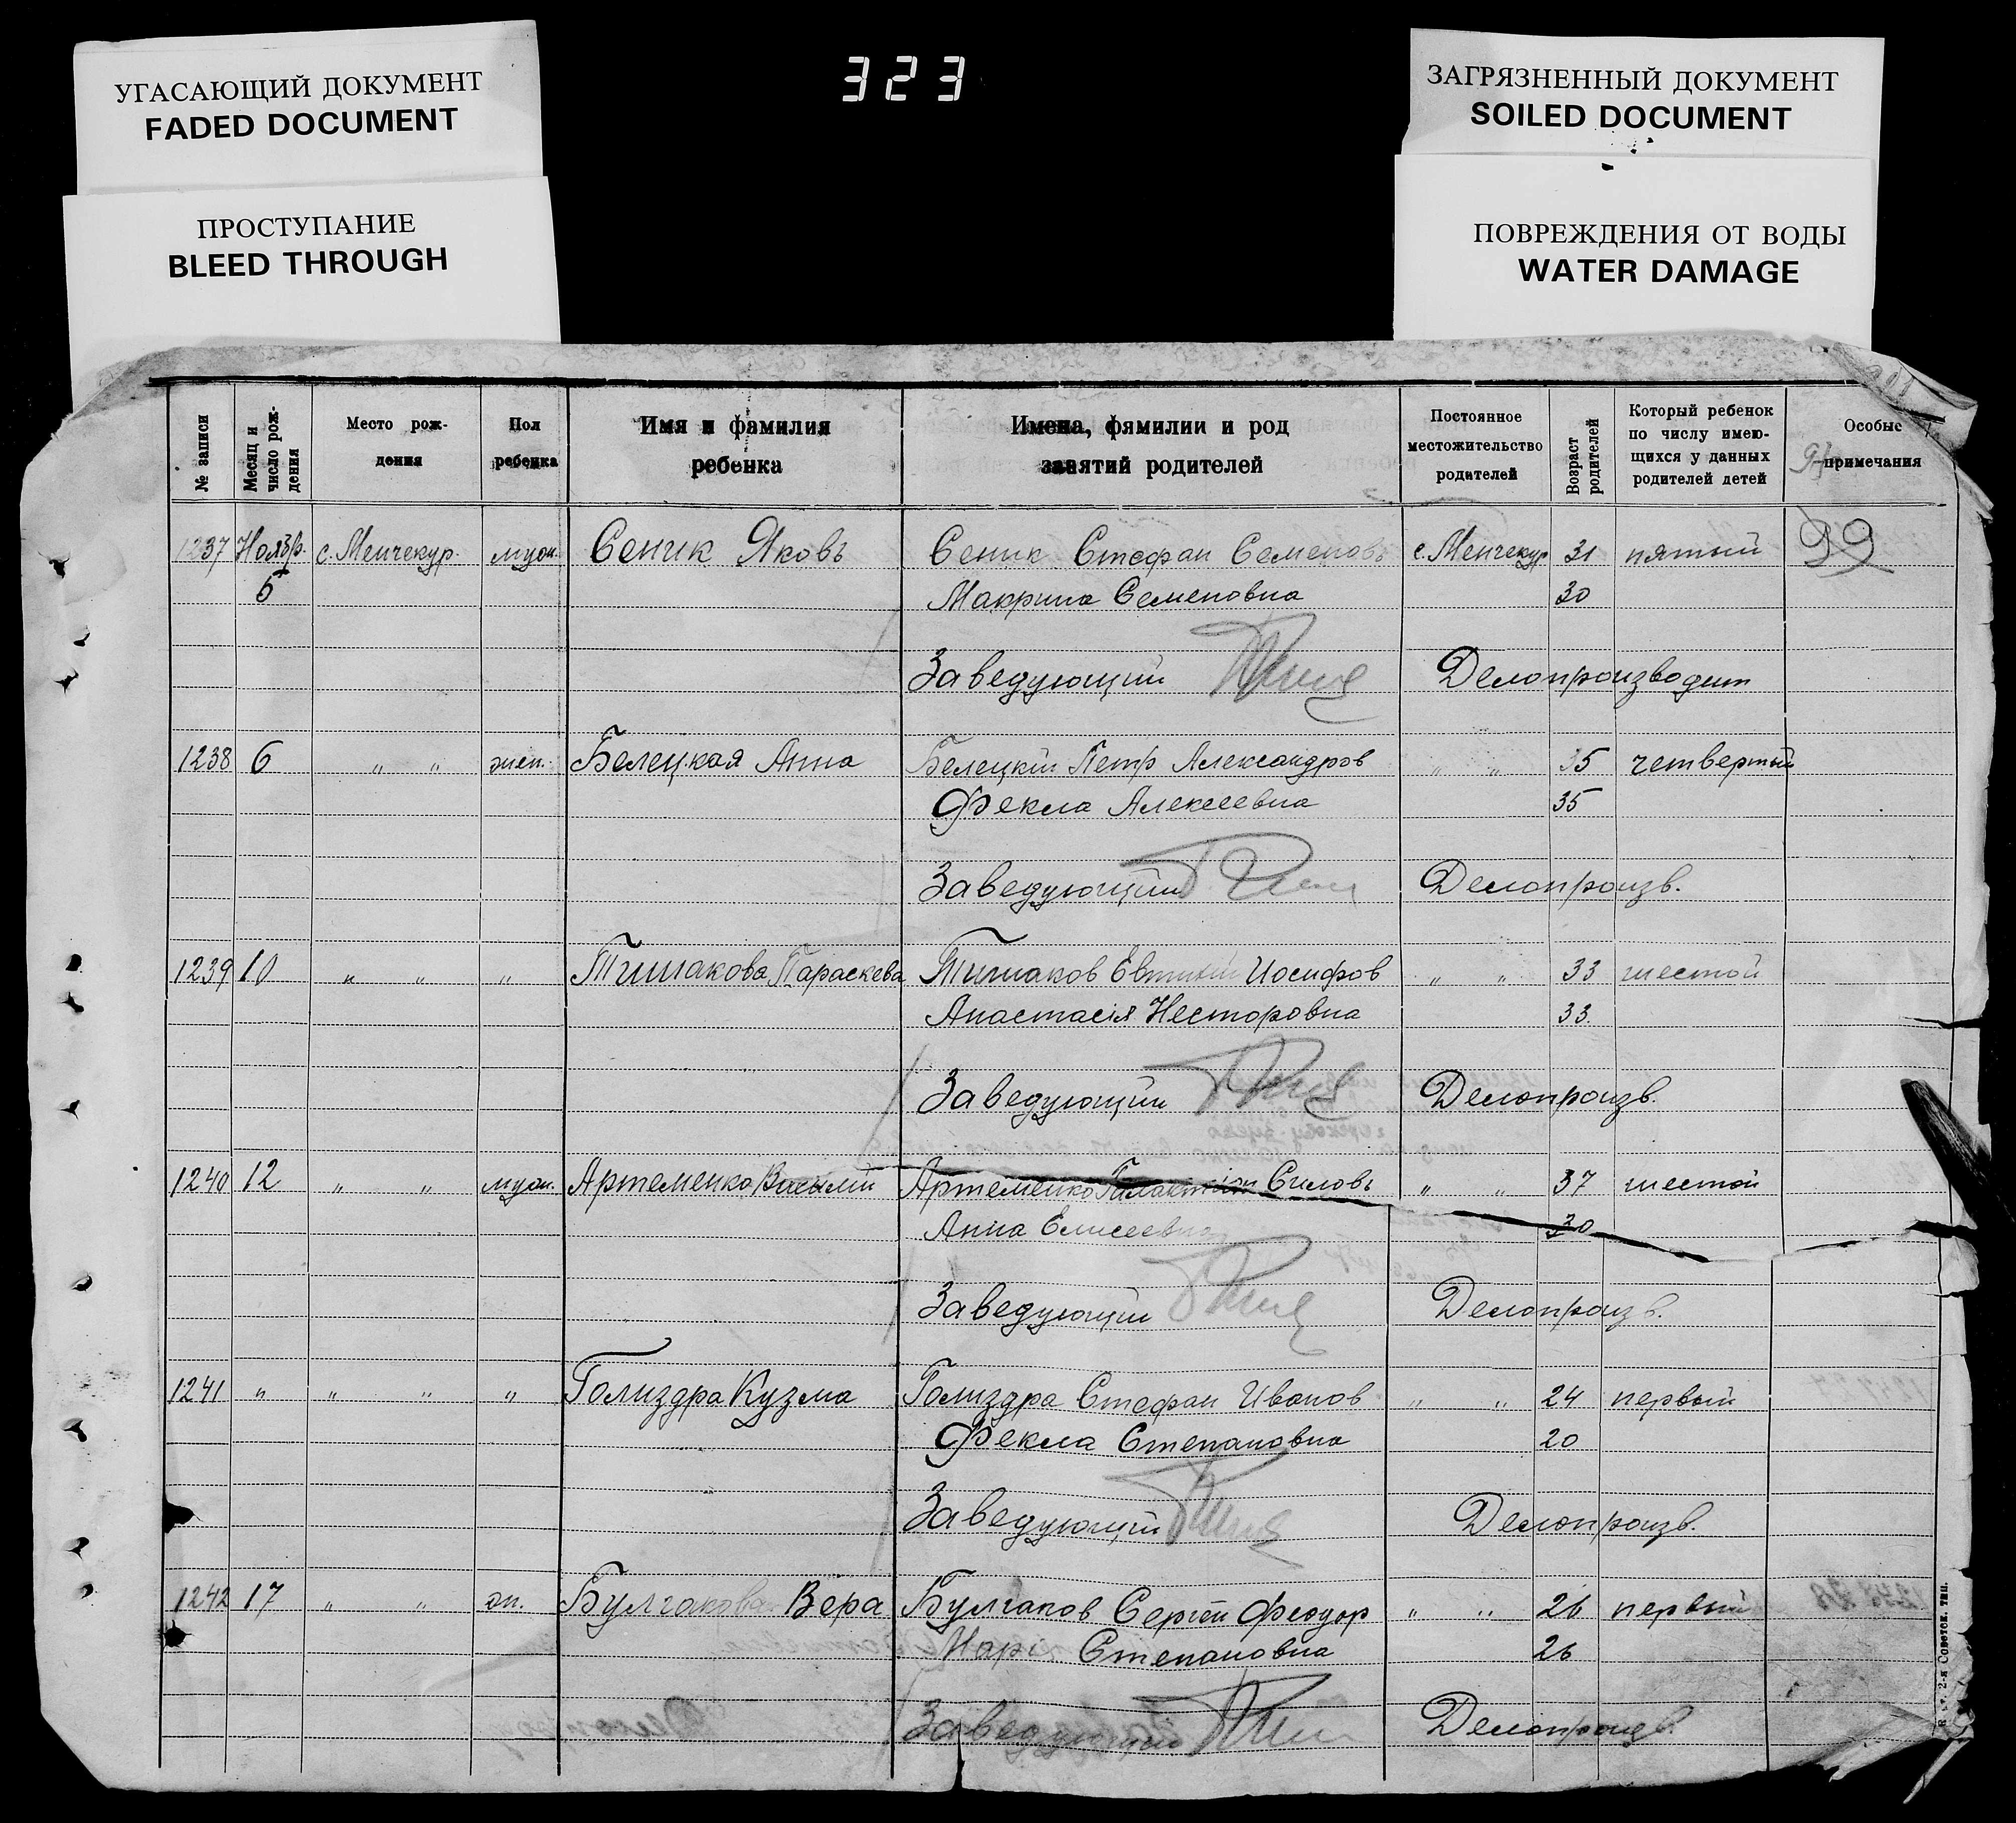 323
УГАСАЮЩИЙ ДОКУМЕНТ
FADED DOCUMENT
ПРОСТУПАНИЕ
BLEED THROUGH
ЗАГРЯЗНЕННЫЙ ДОКУМЕНТ
SOILED DOCUMENT
ПОВРЕЖДЕНИЯ ОТ ВОДЫ
WATER DAMAGE
№ записи
Месяц и число рож-дения
Место рож-
дения
Пол
ребенка
Имя и фамилия
ребенка
Имена, фамилии и род
занятий родителей
Постоянное
местожительство
родителей
Возраст
родителей
Который ребенок
по числу имею-
щихся у данных
родителей детей
Особые
примечания
99
1237 Ноябр. с. Менчекур. муж. Сеник Яковъ Сеник Стефан Семеновъ с. Менчекур 31 пятый
5 Макрина Семеновна 30
Заведующий Делопроизводит
1238 6 " " жен. Белецкая Анна Белецкій Петр Александров " " 35 четвертый
Фекла Алексеевна 35
Заведующий Делопроизв.
1239 10 " " " Тишакова Параскева Тишаков Евтихій Иосифов " " 33 шестой
Анастасія Несторовна 33.
Заведующий Делопроизв.
1240 12 " " муж. Артеменко Василій Артеменко Галактіон Силовъ " " 37 шестой
Анна Елисеевна 30
Заведующий Делопроизв.
1241 " " " " Голиздра Кузма Голиздра Стефан Иванов " " 24 первый
Фекла Степановна 20
Заведующий Делопроизв.
1242 17 " " ж. Булгакова Вера Булгаков Сергій Феодор " " 26 первый
Марі Степановна 26
Заведующий Делопроизв.
2-я Советск. тип.